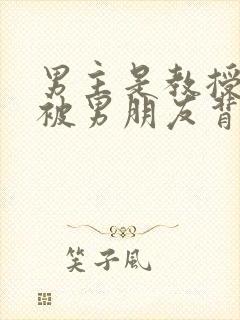 男主是教授
被男朋友背
笑子风